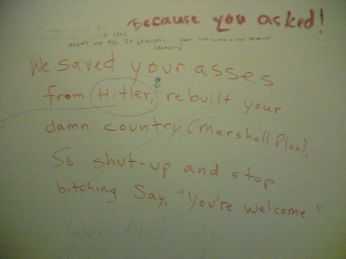 Because you asked!
We saved your asses
from Hitler, rebuilt your
damn country (Marshall Plan),
So shut-up and stop
bitching. Say, "You're welcome."